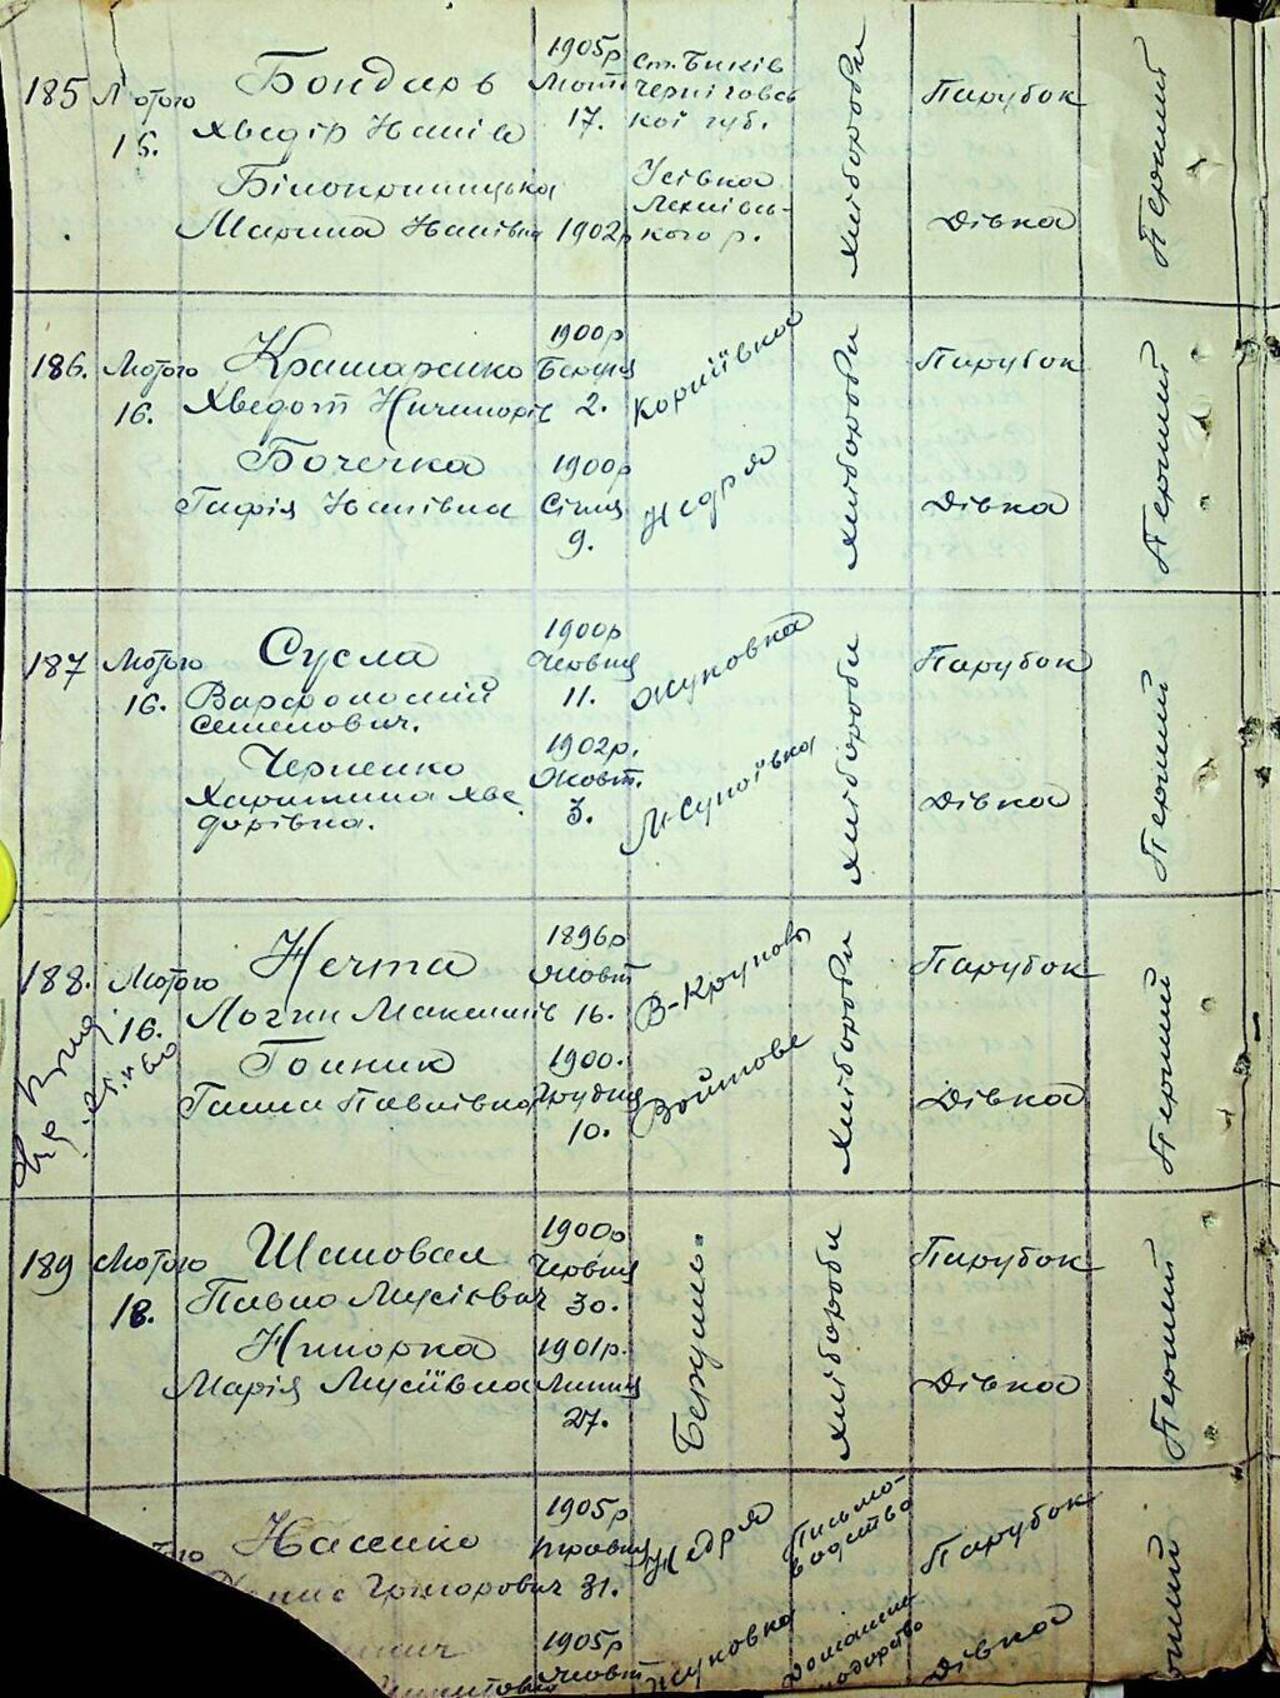 185 Лютого 15.
Бондарь
Хведір Іванів
1905р
Лют
17.
ст. Биків
Черніговсь
кої губ.
хлібороби
Парубок
Перший
Марина Іванівна
1902р
Усівка
кого р.
Дівка
186. Лютого 16.
Крамаренко
Хведот Ничипорів
1900р
Березня
2.
Корніївка
хлібороби
Парубок
Перший
Бочечка
Гафія Іванівна
1900р
Січня
9.
Недря
Дівка
187 Лютого 16.
Сусла
Варфоломій
Семенович.
1900р
Червня
11.
Жуковка
хлібороби
Парубок
Перший
Черненко
Харитина Хве
дорівна.
1902р.
Жовт.
3.
Л-Супоївка
Дівка
188. Лютого 16.
Нечта
Логин Максимів
1896р
Жовт
16.
В-Круполь
хлібороби
Парубок
Перший
Ганна Павлівна
1900.
Грудня
10.
Войтове
Дівка
189 Лютого 18.
Шаповал
Павло Мусієвич
1900р
Червня
30.
Березань.
хлібороби
Парубок
Перший
Марія Мусіївна
1901р.
Липня
27.
Дівка
Григорович
1905р
травня
31.
Недря
Письмо-
водство
Парубок
1905р
Жовт
Жуковка
Домашнє
Дівка